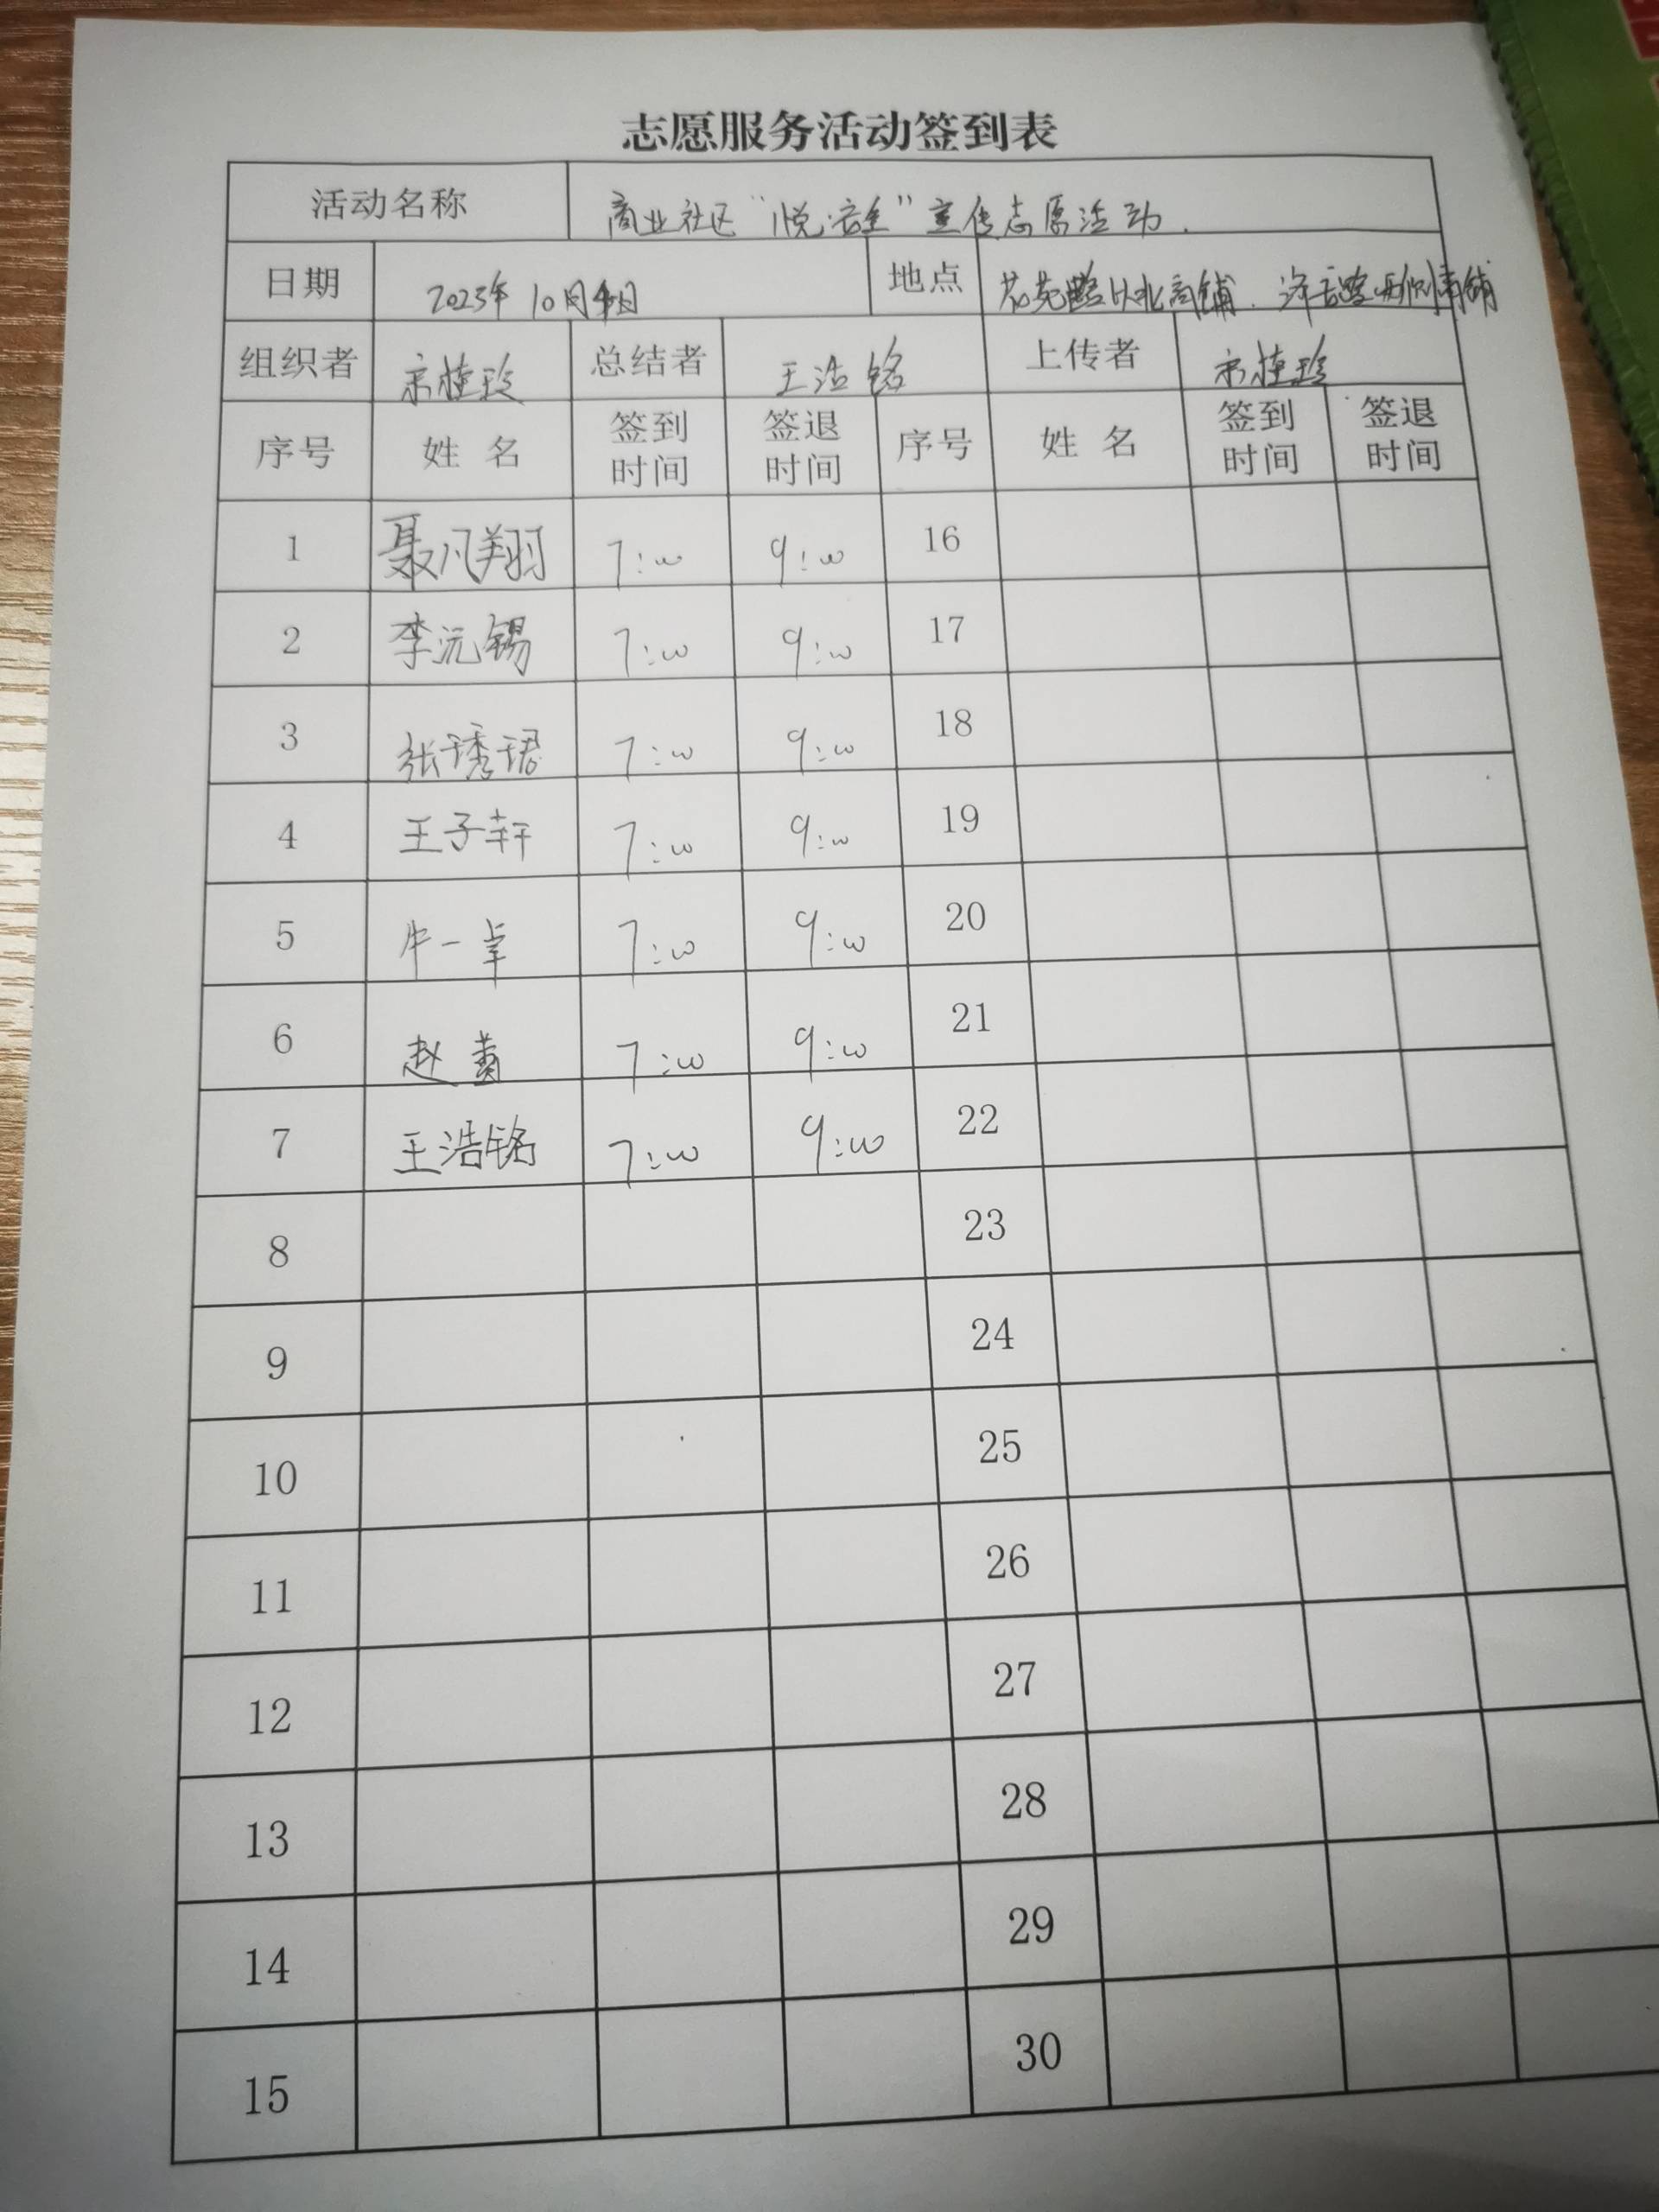 志愿服务活动签到表
活动名称 商业社区“悦·安全”宣传志愿活动.
日期 2023年10月4日 地点 花苑路以北商铺.
组织者 宋桂珍 总结者 王浩铭 上传者 宋桂珍
序号 姓名 签到时间 签退时间 序号 姓名 签到时间 签退时间
1 聂凡翔 7:00 9:00 16
2 李沅锡 7:00 9:00 17
3 张琇珺 7:00 9:00 18
4 王子轩 7:00 9:00 19
5 牛一卓 7:00 9:00 20
6 赵 7:00 9:00 21
7 王浩铭 7:00 9:00 22
8 23
9 24
10 25
11 26
12 27
13 28
14 29
15 30